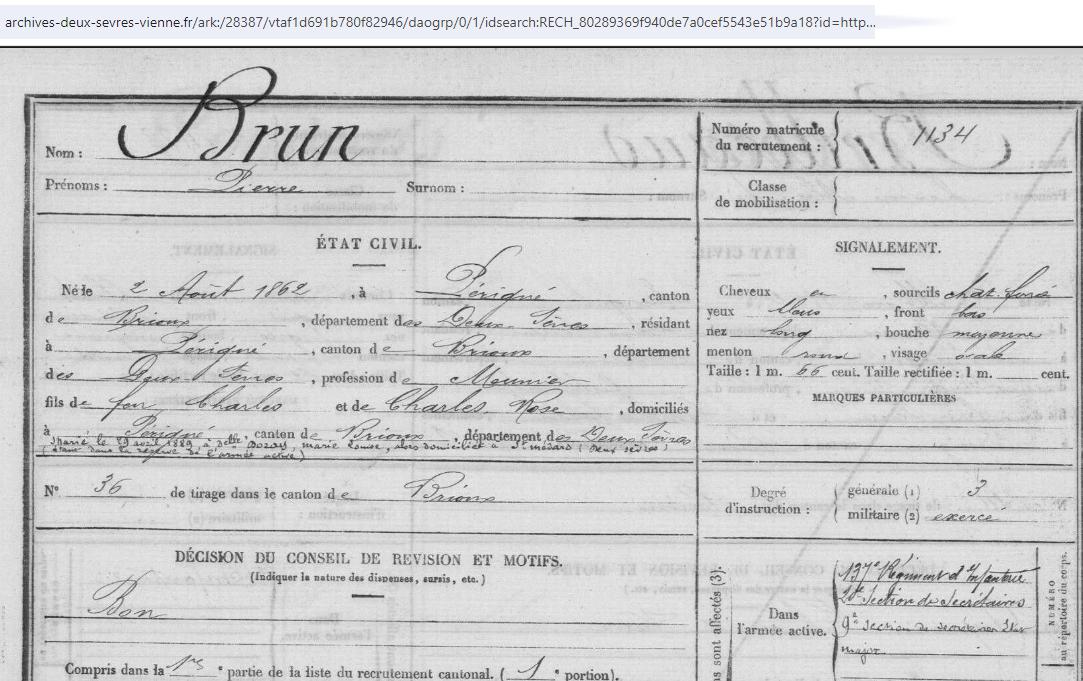 archives-deux-sevres-vienne.fr/ark:/28387/vtaf1d691b780f82946/daogrp/0/1/idsearch:RECH_80289369f940de7a0cef5543e51b9a18?id=http...
Nom : Brun
Prénoms : Pierre Surnom :
Numéro matricule du recrutement : 1134
Classe de mobilisation :
ÉTAT CIVIL.
Né le 2 Août 1862, à Périgné, canton
de Brioux, département des Deux-Sèvres, résidant
à Périgné, canton de Brioux, département
des Deux Sèvres, profession de Meunier
fils de feu Charles et de Charles, Rose, domiciliés
à Périgné, canton de Brioux, département des Deux Sèvres
Marié le 29 avril 1889 à Delle, marie Louise, alors domiciliée à St médard (Deux sèvres)
(étant dans la réserve de l'armée active)
SIGNALEMENT.
Cheveux et, sourcils chat. foncé
yeux bleus, front bas
nez long, bouche moyenne
menton rond, visage ovale
Taille : 1 m. 66 cent. Taille rectifiée : 1 m. cent.
MARQUES PARTICULIÈRES
N° 36 de tirage dans le canton de Brioux
Degré d'instruction : générale (1) 3
militaire (2) exercé
DÉCISION DU CONSEIL DE REVISION ET MOTIFS.
(Indiquer la nature des dispenses, sursis, etc.)
Bon
Compris dans la 1re partie de la liste du recrutement cantonal. (1e portion).
sont affectés (3).
Dans l'armée active.
137e Régiment d'Infanterie
20e Section de Secrétaires
9e Section de secrétaires Etat
major
NUMÉRO
au répertoire du corps.